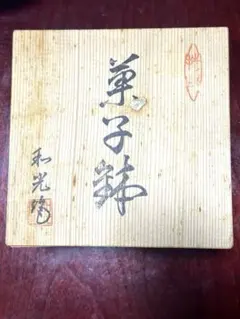 菓子鉢
和光窯